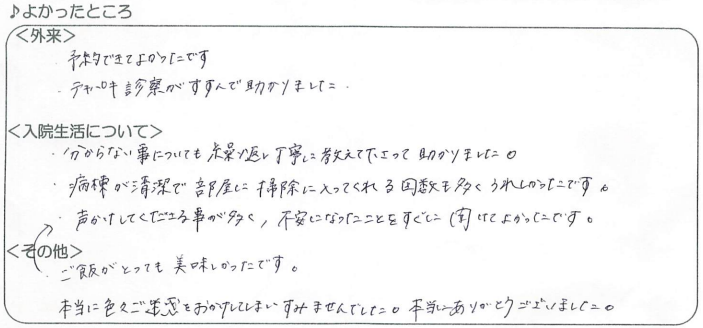 ♪よかったところ
<外来>
・予約できてよかったです
・テキパキ診察がすすんで助かりました.
<入院生活について>
・分からない事についても繰り返し丁寧に教えて下さって助かりました。
・病棟が清潔で部屋に掃除に入ってくれる回数も多くうれしかったです。
・声かけしてくださる事が多く,不安になったことをすぐに聞けてよかったです。
<その他>
・ご飯がとっても美味しかったです。
本当に色々ご迷惑をおかけしてしまいすみませんでした。本当にありがとうございました。